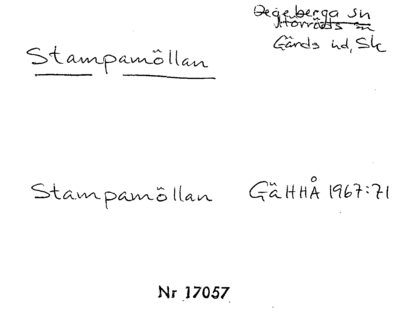 Degeberga sn
Gärds hd, Sk
Stampamöllan
Stampamöllan GäHHÅ 1967:71
Nr 17057